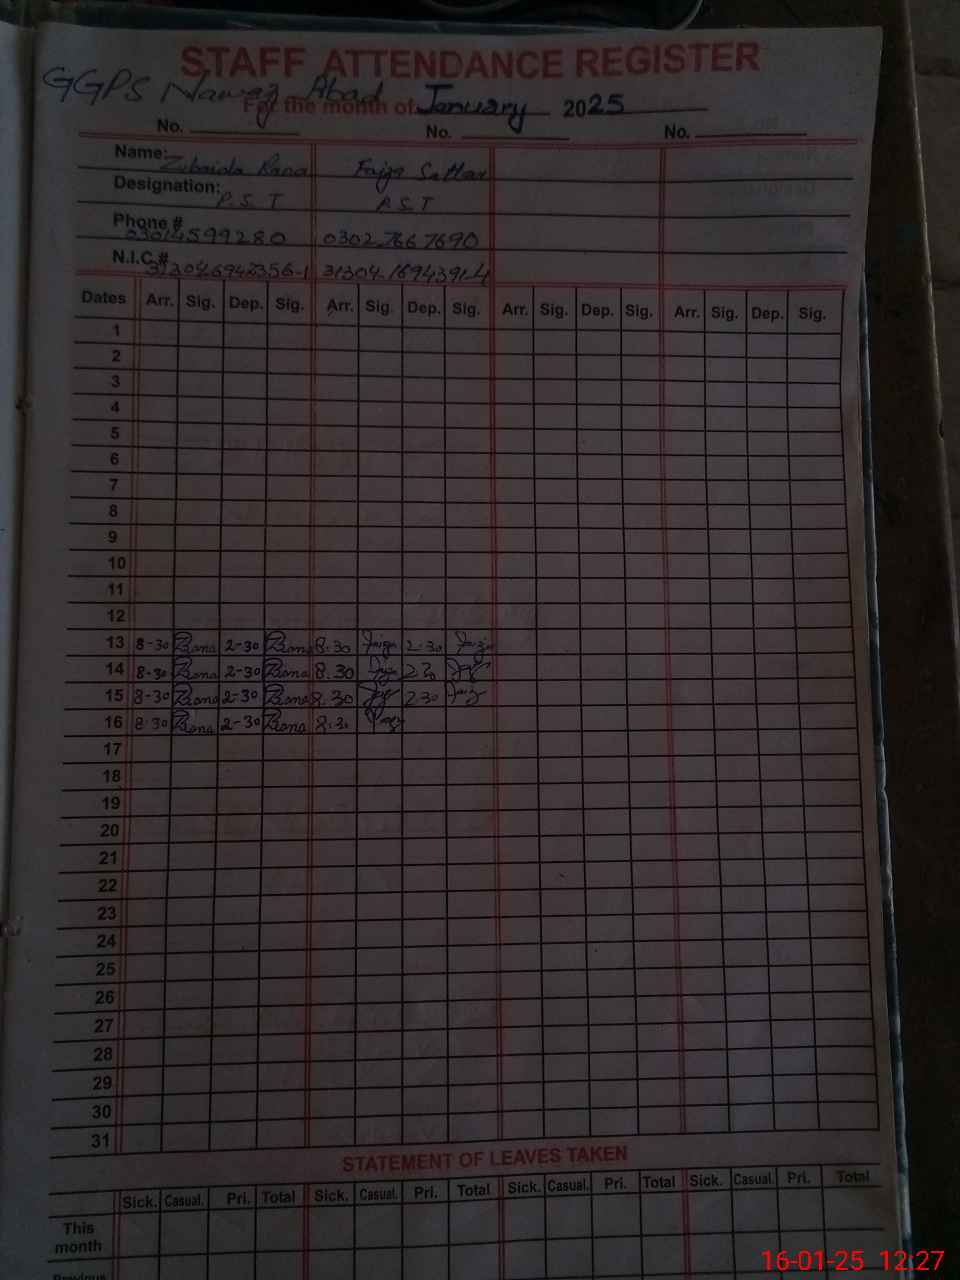 STAFF ATTENDANCE REGISTER
GGPS Nawaz Abad
For the month of January 2025
No. No. No.
Name: Zubaida Rana Faiza Sattar
Designation: P.S.T P.S.T
Phone # 03014599280 0302-7667690
N.I.C.#
Dates Arr. Sig. Dep. Sig. Arr. Sig. Dep. Sig. Arr. Sig. Dep. Sig. Arr. Sig. Dep. Sig.
1
2
3
4
5
6
7
8
9
10
11
12
13 8-30 Rana 2-30 Rana 8.30 Faiza 2.30 Faiza
14 8-30 Rana 2-30 Rana 8.30
15 8-30 Rana 2-30 Rana 8.30 2 30
16 8.30 Rana 2-30 Rana 8.30
17
18
19
20
21
22
23
24
25
26
27
28
29
30
31
STATEMENT OF LEAVES TAKEN
Sick. Casual. Pri. Total Sick. Casual. Pri. Total Sick. Casual. Pri. Total Sick. Casual. Pri. Total
This
month
Previous
16-01-25 12:27